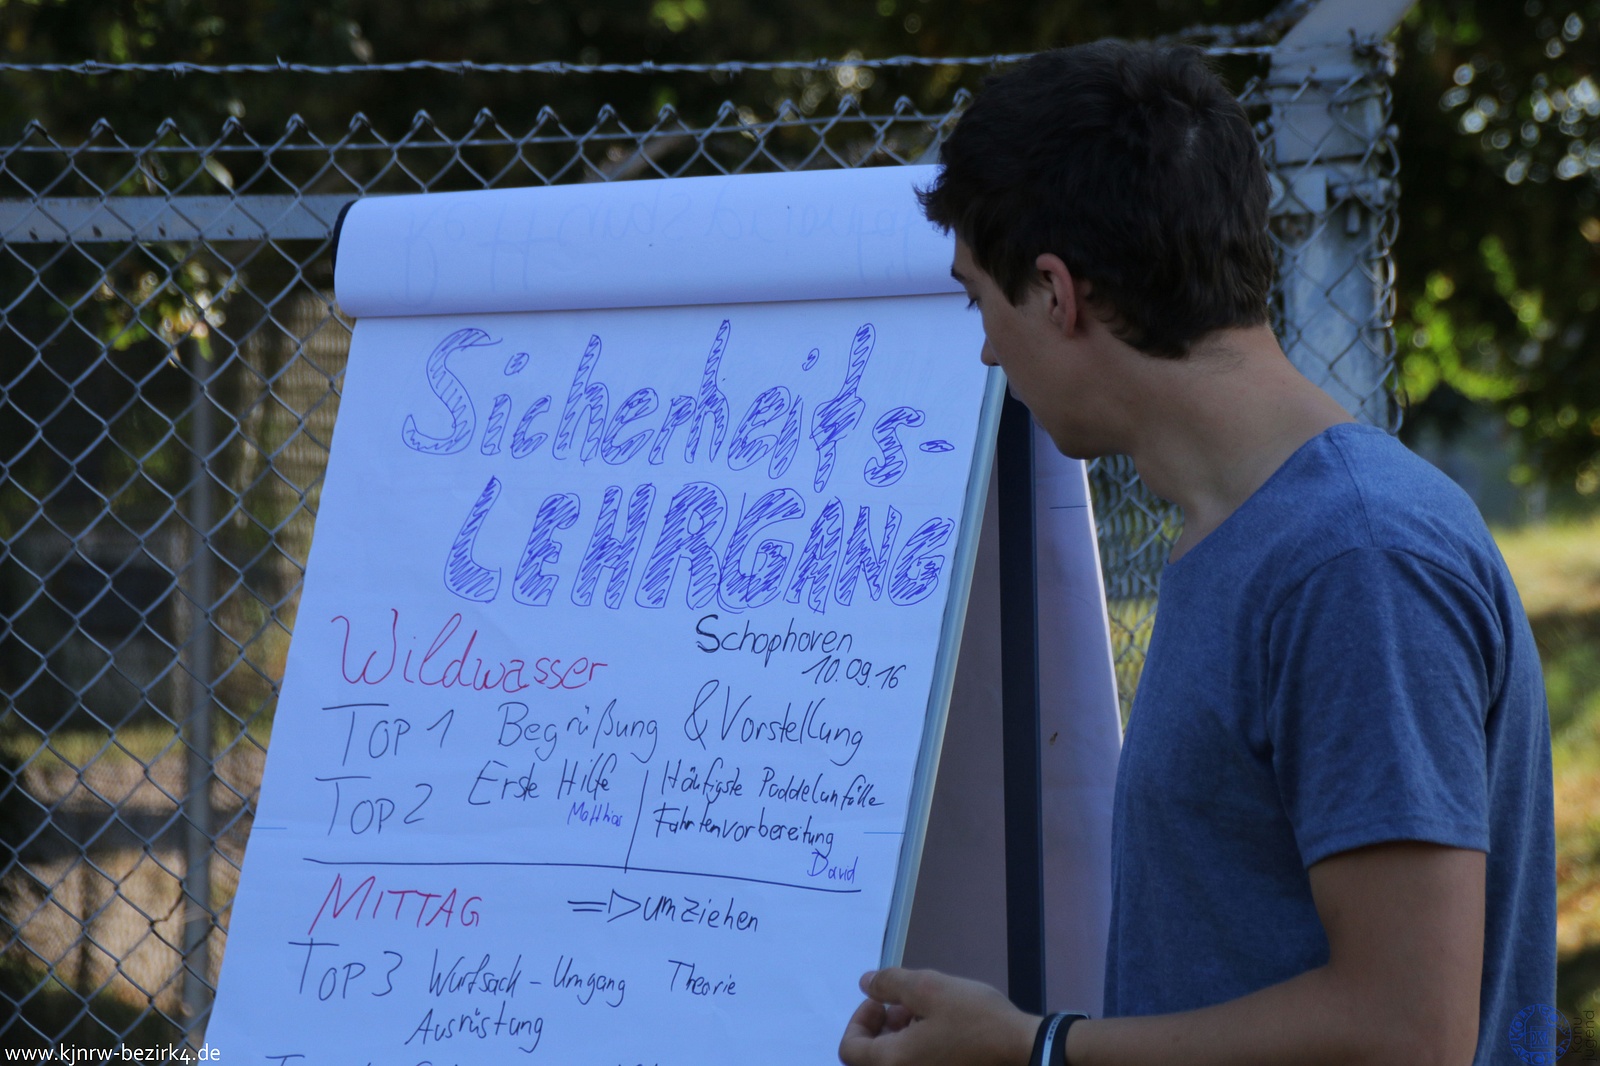 Sicherheits-
LEHRGANG
Schophoven
10.09.16
Wildwasser
TOP 1 Begrüßung & Vorstellung
TOP 2 Erste Hilfe Matthias
Häufigste Paddelunfälle
Fahrtenvorbereitung
David
MITTAG => umziehen
TOP 3 Wurfsack - Umgang Theorie
Ausrüstung
www.kjnrw-bezirk4.de
Kanu
Jugend